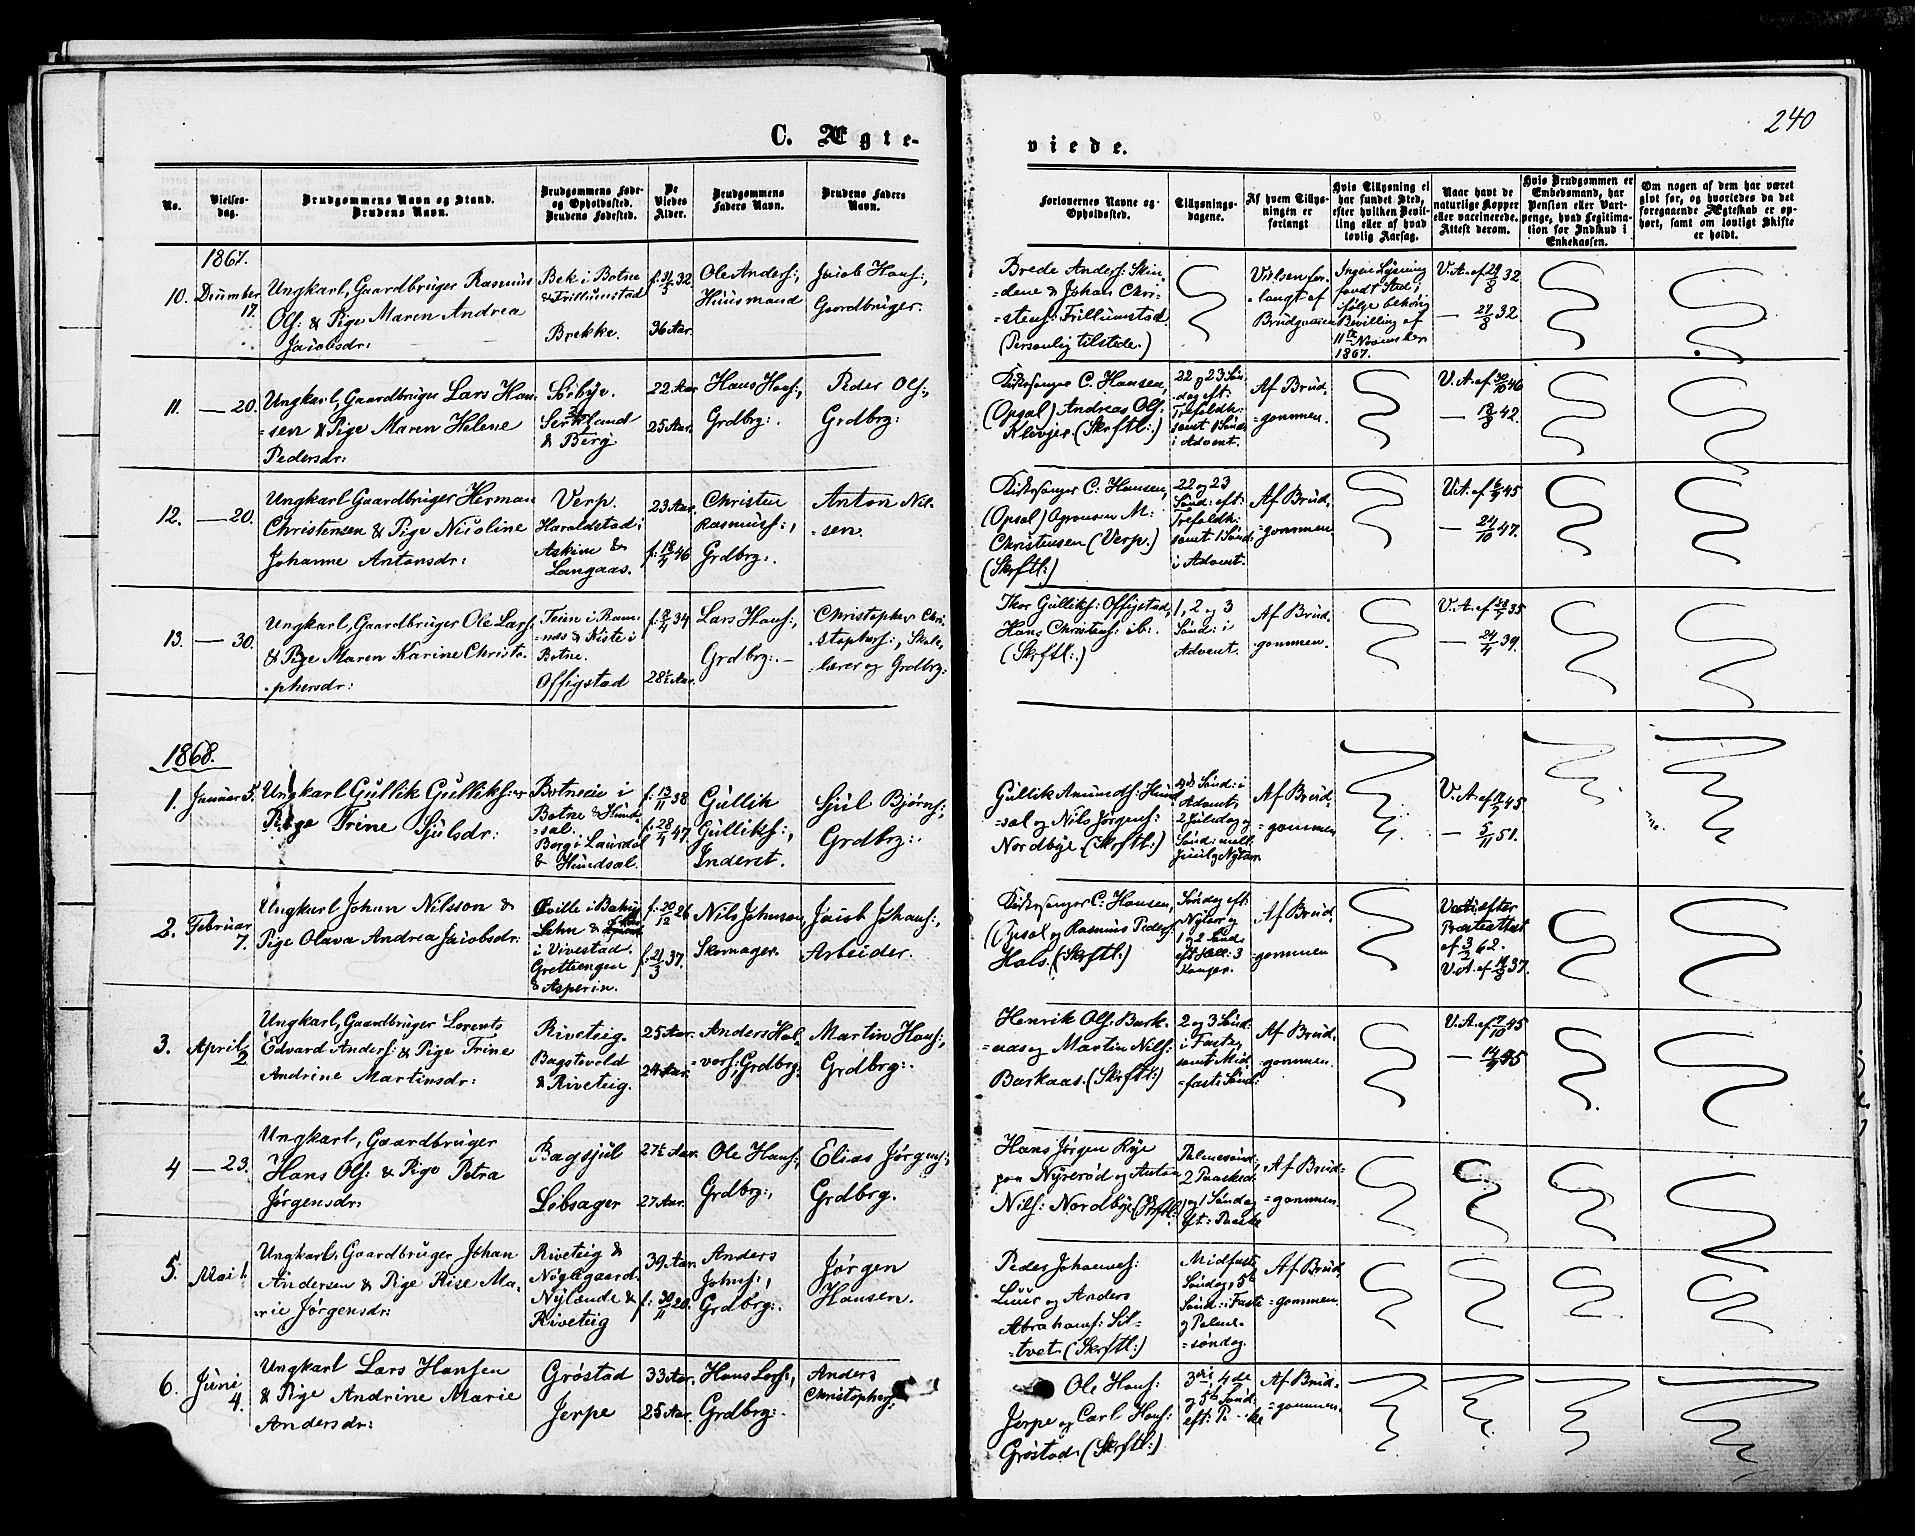 240
C. Ægte-
viede.
No.
Vielses-
dag.
Brudgommens Navn og Stand.
Brudens Navn.
Brudgommens Føde-
og Opholdssted.
Brudens Fødested.
De
Viedes
Alder.
Brudgommens
Faders Navn.
Brudens Faders
Navn.
Forlovernes Navne og
Opholdssted.
Tillysnings-
dagene.
Af hvem Tillys-
ningen er
forlangt
Hvis Tillysning ei
har fundet Sted,
efter hvilken Bevil-
ling eller af hvad
lovlig Aarsag.
Naar havt de
naturlige Kopper
eller vaccinerede.
Attest derom.
Hvis Brudgommen er
Embedsmand, har
Pension eller Vart-
penge, hvad Legitima-
tion for Indskud i
Enkekassen.
Om nogen af dem har været
gift før, og hvorledes da det
foregaaende Ægteskab er op-
hørt, samt om lovligt Skifte
er holdt.
1867.
10. December
17.
Ungkarl, Gaardbruger Rasmus
Ols: & Pige Maren Andrea
Jacobsdr:
Bek i Botne
& Trillumstad
Brekke.
f: 31/3 32
36 Aar.
Ole Anders:,
Huusmand
Jacob Hans:,
Gaardbruger.
Brede Anders: Skin-
=dene & Johan Chri-
=stens: Trillumstad
(Personlig tilstede.)
Vielsen for-
=langt af
Brudgommen
Ingen Lysning
fandt Sted,
ifølge behørig
Bevilling af
11te November
1867.
V. A. af 29/8 32
— 27/8 32.
11. — 20.
Ungkarl, Gaardbruger Lars Han-
=sen & Pige Maren Helene
Pedersdr:
Sørbye.
Serkland
& Berg
22 Aar
25 Aar.
Hans Hans:,
Grdbrg:.
Peder Ols:,
Grdbrg:
Kirkesanger C. Hansen,
(Opsal) Andreas Ols:
Klevjer. (Skrftl:)
22 og 23 Søn-
dag eft:
Trefoldh:
samt 1 Sønd:
i Advent.
Af Brud-
=gommen.
V. A. af 30/10 46
— 13/8 42.
12. — 20.
Ungkarl Gaardbruger Herman
Christensen & Pige Nicoline
Johanne Antonsdr:
Verp.
Haraldstad i
Askim &
Langaas.
23 Aar.
f: 18/4 46
Christen
Rasmuss:,
Grdbrg:.
Anton Nil-
=sen.
Kirkesanger C: Hansen,
(Opsal) Agronom M:
Christensen (Verp.)
(Skrftl:)
22 og 23
Sønd: eft:
Trefoldh:
samt 1 Sønd:
i Advent.
Af Brud-
=gommen
V. A. af 6/9 45
— 24/10 47.
13. — 30.
Ungkarl, Gaardbruger Ole Lars:
& Pige Maren Karine Christo-
=phersdr:
Teien i Ram-
=nes & Kiste i
Botne.
Offigstad
f: 8/4 34
28½ Aar.
Lars Hans:,
Grdbrg:. —
Christopher Chri-
=stophers:, Skole-
=lærer og Grdbrg:
Thor Gulliks: Offigstad,
Hans Christens: ib:.
(Skrftl:.)
1, 2 og 3
Sønd: i
Advent.
Af Brud-
gommen.
V. A. af 28/7 35
— 24/4 39.
1868.
1. Januar 5.
Ungkarl Gullik Gulliks: &
Pige Trine Sjulsdr:
Botneie i
Botne & Hund-
=sal.
Berg i Laurdal
& Hundsal.
f: 13/11 38
f: 28/4 47
Gullik
Gulliks:,
Inderst.
Sjul Bjørns:,
Grdbrg:.
Gullik Amunds: Hund-
=sal og Nils Jørgens:
Nordbye. (Skrftl:)
Sønd: i
Advent,
2 Juledag og
Sønd: mell:
Juul og Nytaar.
Af Brud-
=gommen
V. A. af 12/7 45
— 5/11 51.
2. Februar
7.
Ungkarl Johan Nilsson &
Pige Olava Andrea Jacobsdr:
i Vivestad.
Grettengen
& Asperin.
f: 20/12 26
f: 21/3 37.
Nils Johnson,
Skomager.
Jacob Johans:,
Arbeider.
Kirkesanger C. Hansen,
(Opsal og Rasmus Peders:
Hals. (Skrftl:)
Søndag eft:
Nytaar og
1 og 2 Sønd:
eft: Hell: 3
Konger.
Af Brud-
gommen
efter
Præsteattest
af 3/2 62.
V. A. af 14/8 37.
3. April
2
Ungkarl, Gaardbruger Lorents
Edvard Anders: & Pige Trine
Andrine Martinsdr:
Riveteig.
Bagstvold
& Riveteig.
25 Aar.
24 Aar.
Anders Hal-
vors:, Grdbrg:
Martin Hans:,
Grdbrg:.
Henrik Ols: Bark-
=aas og Martin Nils:
Barkaas. (Skrftl:)
2 og 3 Sønd:
i Faste
samt Mid-
=faste Sønd:
Af Brud-
gommen.
V. A. af 7/10 45
— 14/9 55
4 — 23.
Ungkarl, Gaardbruger
Hans Ols: & Pige Petra
Jørgensdr:
Bagsjul
Løbsager
27½ Aar.
27 Aar.
Ole Hans:,
Grdbrg:,
Elias Jørgens:,
Grdbrg.
Hans Jørgen Rye
paa Nyrerød og Anton
Nils: Nordbye (Skrftl:)
Palmesønd:,
2 Paasked:
og 1 Søndag
eft: Paaske
Af Brud-
=gommen.
5. Mai 1.
Ungkarl, Gaardbruger Johan
Andersen & Pige Rise Ma-
=rie Jørgensdr:
Riveteig &
Nøglegaard.
Nylande &
Riveteig
39 Aar.
f: 30/11 20.
Anders
Johns:,
Grdbrg:.
Jørgen
Hansen.
Peder Johannes:
Luur og Anders
Abrahams: Sil-
=tvet. (Skrftl:)
Midfaste
Søndag, 5te
Sønd: i Faste
og Palme-
=søndag.
Af Brud-
=gommen.
6. Juni
4.
Ungkarl Lars Hansen
& Pige Andrine Marie
Andersdr:
Grøstad
Jerpe
33 Aar.
25 Aar.
Hans Lars:,
Grdbrg:.
Anders
Christophers:
Ole Hans:
Jerpe og Carl Hans:
Grøstad. (Skrftl:)
3die, 4de
og 5te Sønd:
eft:
Af Brud-
=gommen.